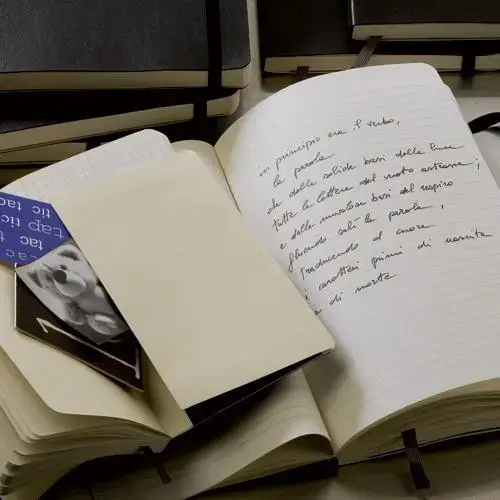 in principio era il verbo,
la parola
che dalle solide basi della luce
tutte le lettere del vuoto
e dalle nuvolose basi del respiro
salì la parola,
traducendo al cuore
caratteri primi di nascita
di morte
tac
tap tic
tic tac
1